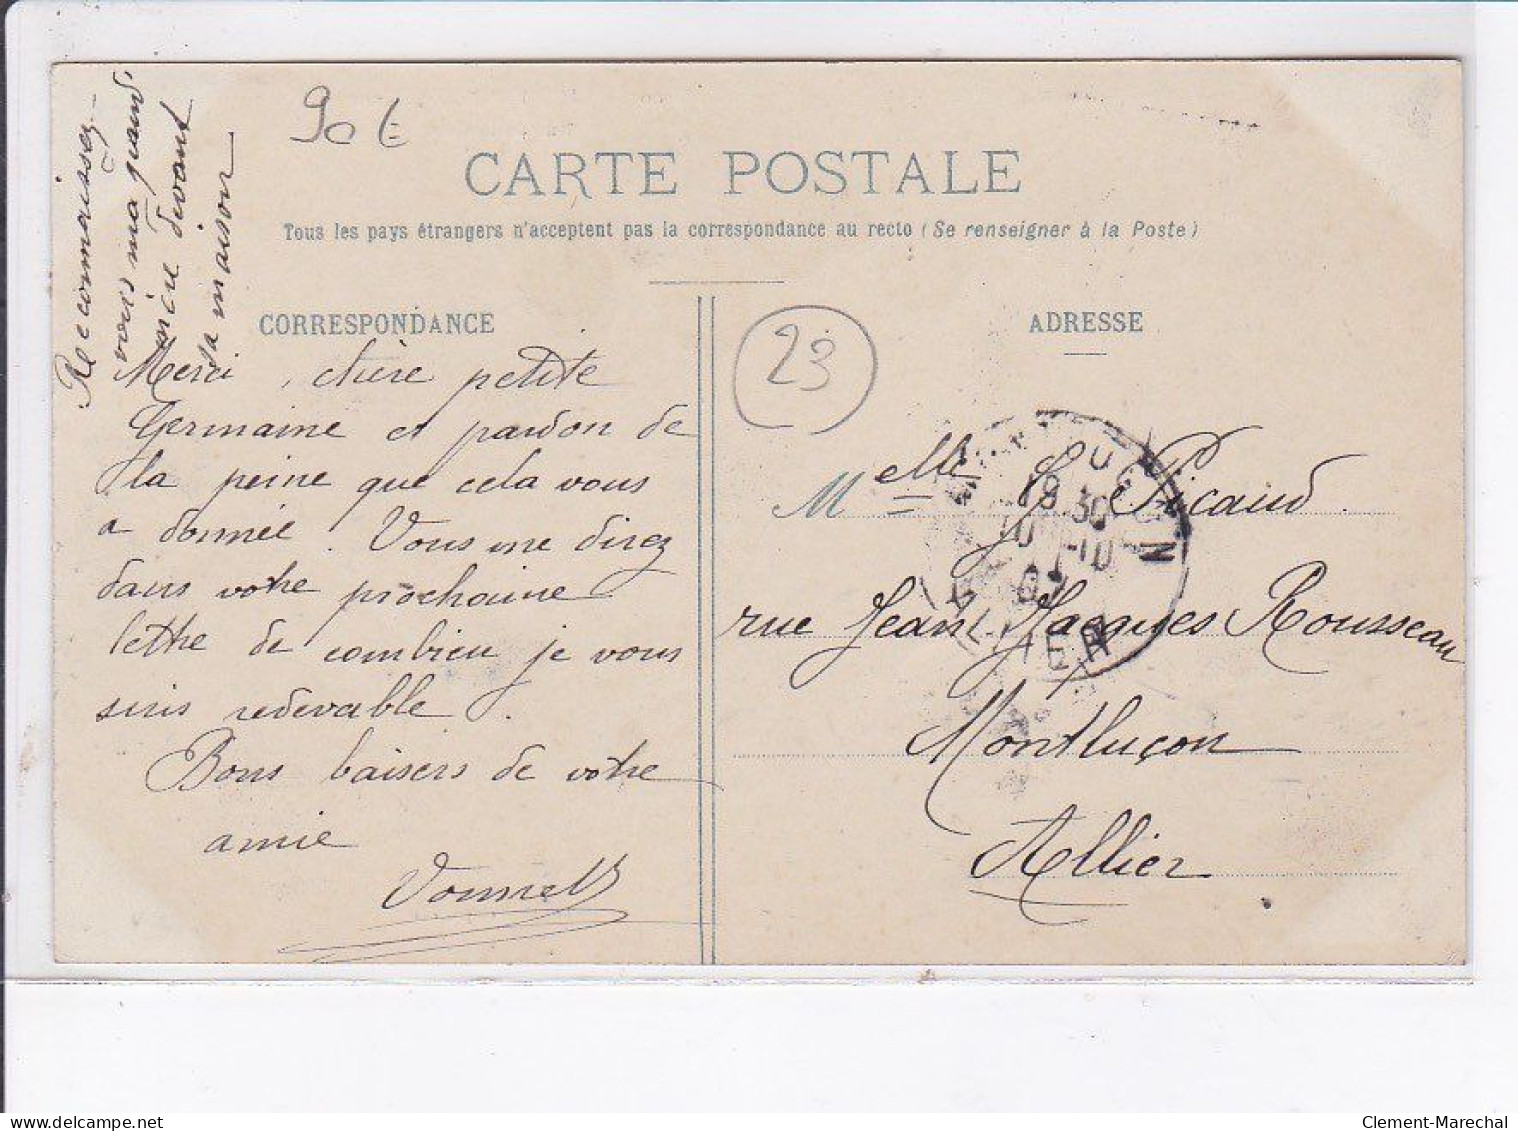 90 €
CARTE POSTALE
Tous les pays étrangers n'acceptent pas la correspondance au recto (Se renseigner à la Poste)
Reconnaissez-
vous ma grand'
mère devant
sa maison
CORRESPONDANCE
Merci, chère petite
Germaine et pardon de
la peine que cela vous
a donnée. Vous me direz
dans votre prochaine
lettre de combien je vous
suis redevable.
Bons baisers de votre
amie
23
ADRESSE
Melle G. Picaud
rue Jean-Jacques Rousseau
Montluçon
Allier
18 30
10 -10
delcampe.net
Clement-Marechal